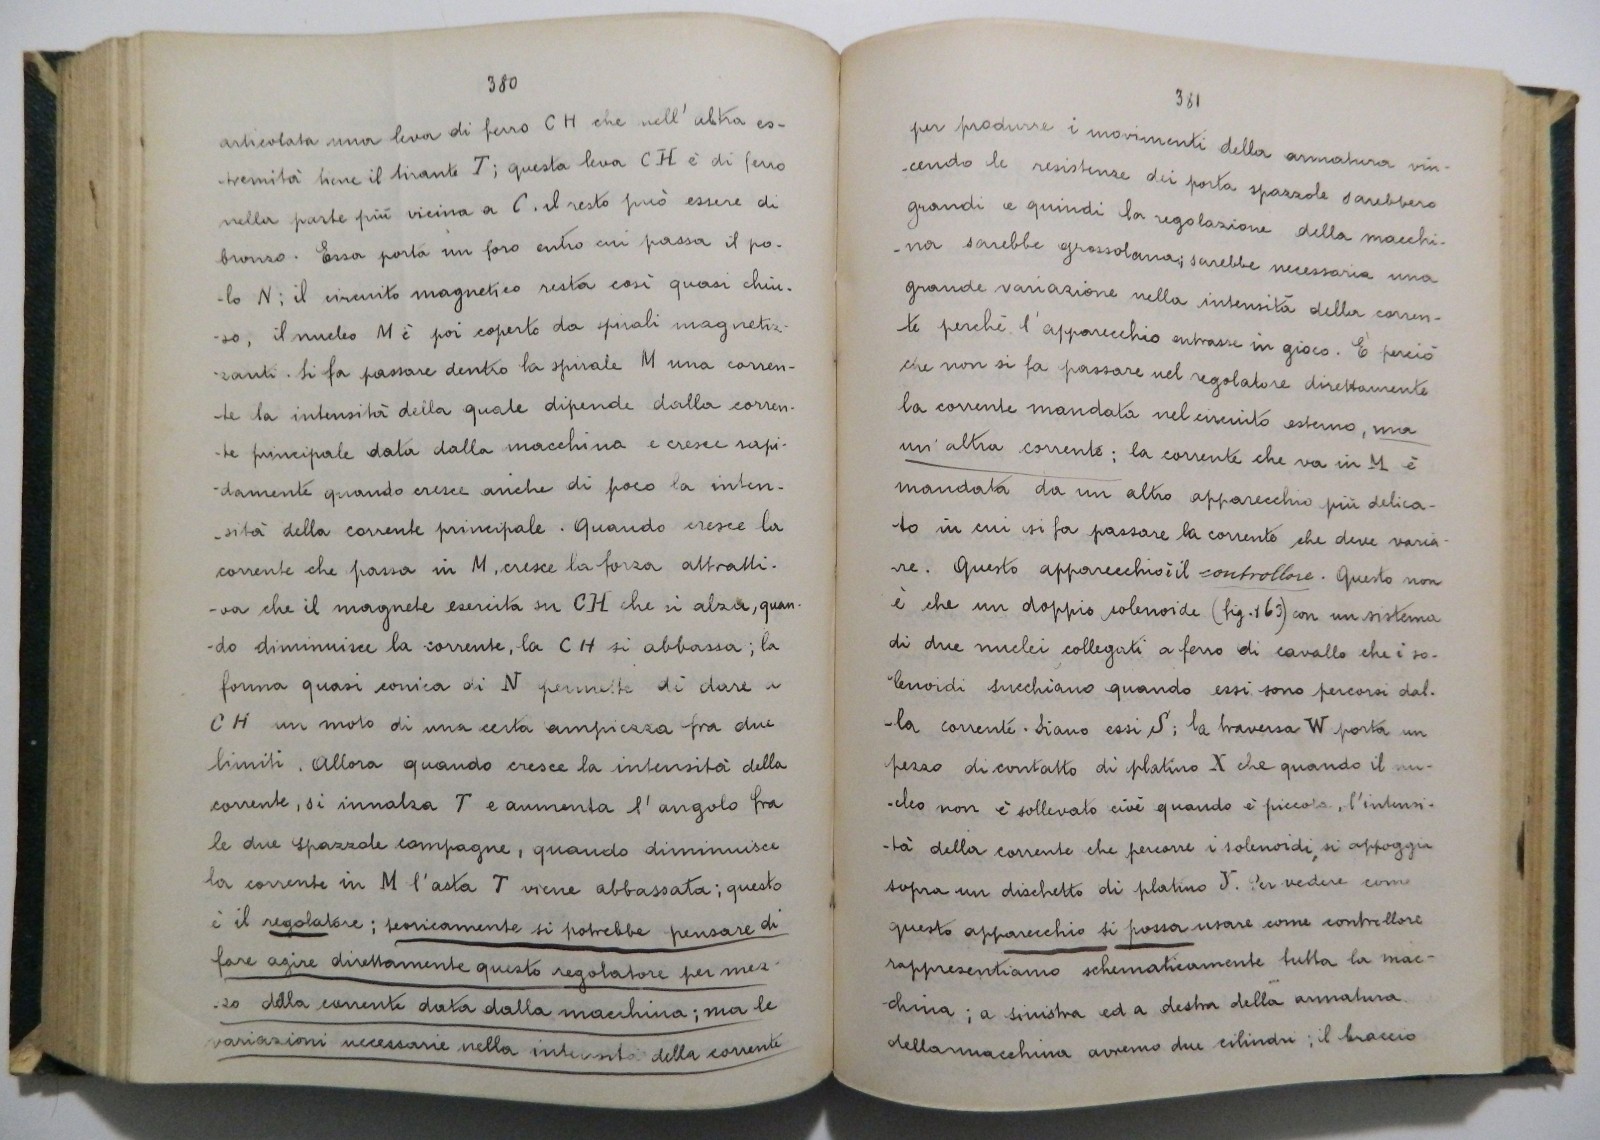 380
articolata una leva di ferro CH che nell'altra es-
-tremità tiene il tirante T; questa leva CH è di ferro
nella parte più vicina a C, il resto può essere di
bronzo. Essa porta un foro entro cui passa il po-
-lo N; il circuito magnetico resta così quasi chiu-
-so, il nucleo M è poi coperto da spirali magnetiz-
-zanti. Si fa passare dentro la spirale M una corren-
-te la intensità della quale dipende dalla corren-
-te principale data dalla macchina e cresce rapi-
-damente quando cresce anche di poco la inten-
-sità della corrente principale. Quando cresce la
corrente che passa in M, cresce la forza attratti-
-va che il magnete esercita su CH che si alza, quan-
-do diminuisce la corrente, la CH si abbassa; la
forma quasi conica di N permette di dare a
CH un moto di una certa ampiezza fra due
limiti. Allora quando cresce la intensità della
corrente, si innalza T e aumenta l'angolo fra
le due spazzole compagne, quando diminuisce
la corrente in M l'asta T viene abbassata; questo
è il regolatore; teoricamente si potrebbe pensare di
fare agire direttamente questo regolatore per mez-
-zo della corrente data dalla macchina; ma le
variazioni necessarie nella intensità della corrente
381
per produrre i movimenti della armatura vin-
-cendo le resistenze dei porta spazzole sarebbero
grandi e quindi la regolazione della macchi-
-na sarebbe grossolana; sarebbe necessaria una
grande variazione nella intensità della corren-
-te perchè l'apparecchio entrasse in gioco. È perciò
che non si fa passare nel regolatore direttamente
la corrente mandata nel circuito esterno, ma
un'altra corrente; la corrente che va in M è
mandata da un altro apparecchio più delica-
-to in cui si fa passare la corrente che deve varia-
-re. Questo apparecchio è il controllore. Questo non
è che un doppio solenoide (fig. 163) con un sistema
di due nuclei collegati a ferro di cavallo che i so-
lenoidi succhiano quando essi sono percorsi dal-
-la corrente. Siano essi S; la traversa W porta un
pezzo di contatto di platino X che quando il nu-
-cleo non è sollevato cioè quando è piccola, l'intensi-
-tà della corrente che percorre i solenoidi, si appoggia
sopra un dischetto di platino Y. Per vedere come
questo apparecchio si possa usare come controllore
rappresentiamo schematicamente tutta la mac-
-china; a sinistra ed a destra della armatura
della macchina avremo due cilindri; il braccio